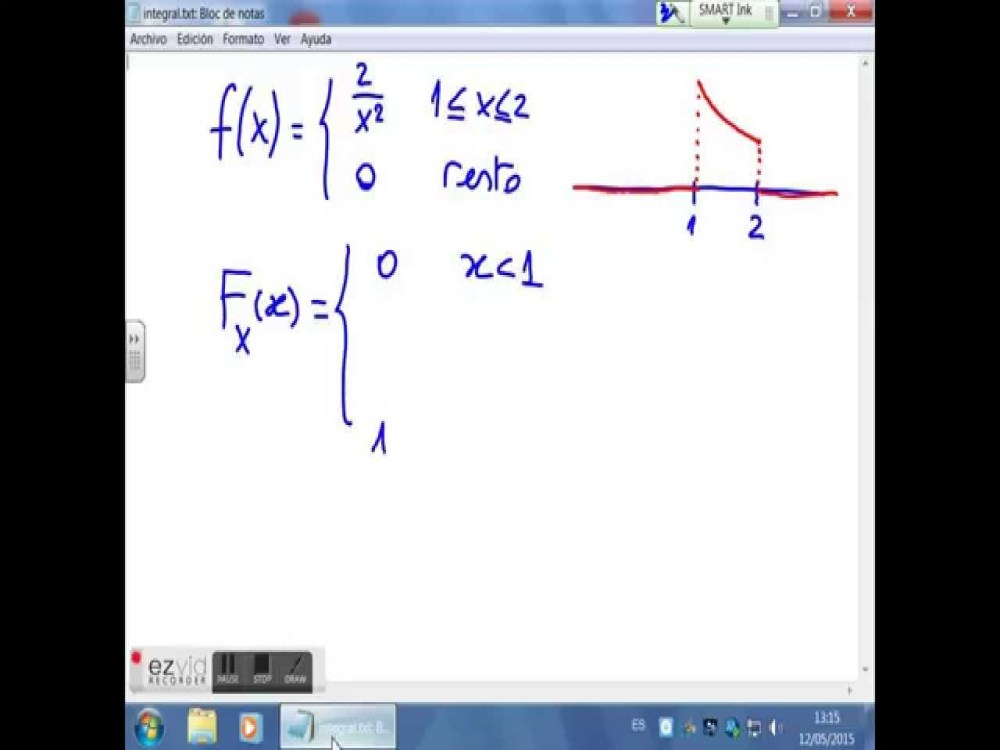 integral.txt: Bloc de notas
SMART Ink
Archivo Edición Formato Ver Ayuda
f(x) = { 2/x² 1 ≤ x ≤ 2
0 resto
1 2
F_X(x) = { 0 x < 1
1
ezvid
RECORDER
PAUSE STOP DRAW
integral.txt: B...
ES
13:15
12/05/2015